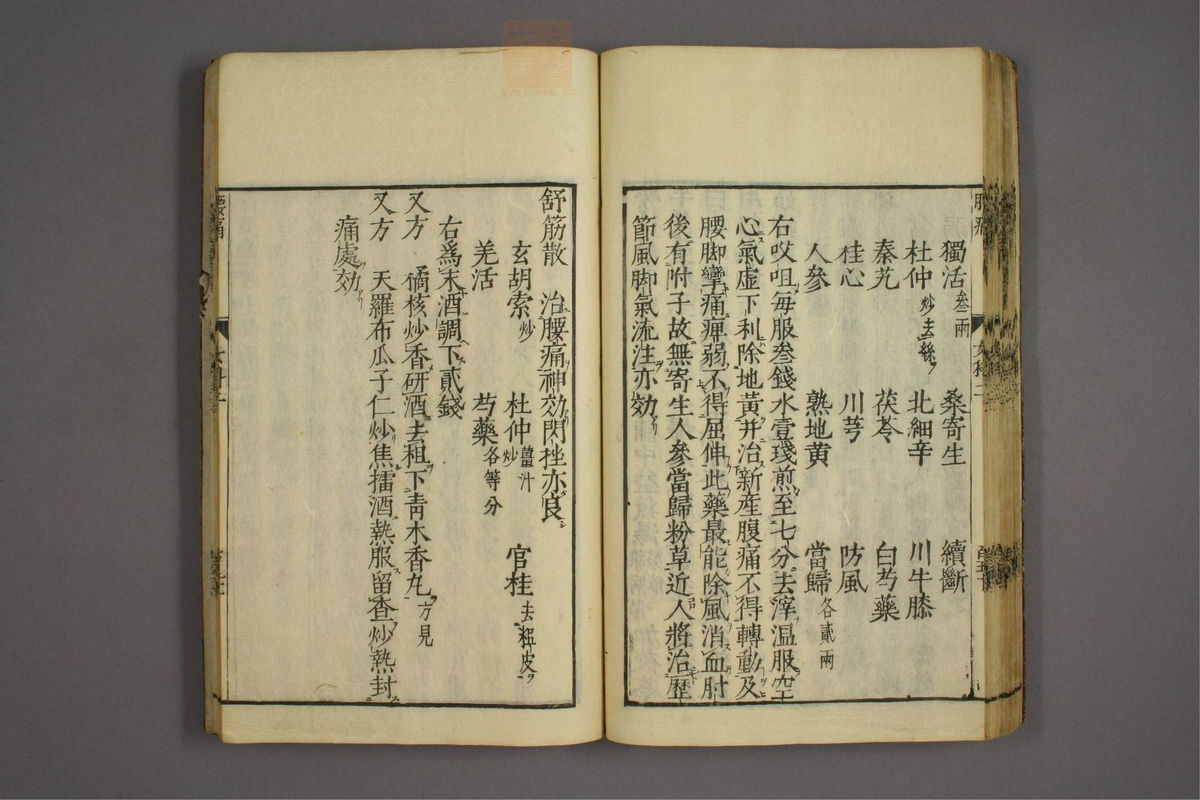 獨活叁兩　桑寄生　續斷
杜仲炒去絲　北細辛　川牛膝
秦艽　茯苓　白芍藥
桂心　川芎　防風
人參　熟地黃　當歸各貳兩
右㕮咀每服叁錢水壹琖煎至七分去滓温服空
心氣虛下利除地黃并治新産腹痛不得轉動及
腰脚攣痛痺弱不得屈伸此藥最能除風消血肘
後有附子故無寄生人參當歸粉草近人將治歷
節風脚氣流注亦効
舒筋散　治腰痛神効閃挫亦良
玄胡索炒　杜仲薑汁炒　官桂去粗皮
羌活　芍藥各等分
右爲末酒調下貳錢
又方　橘核炒香研酒去租下青木香丸方見
又方　天羅布瓜子仁炒焦擂酒熱服留查炒熱封
痛處効
腰痛
女科二